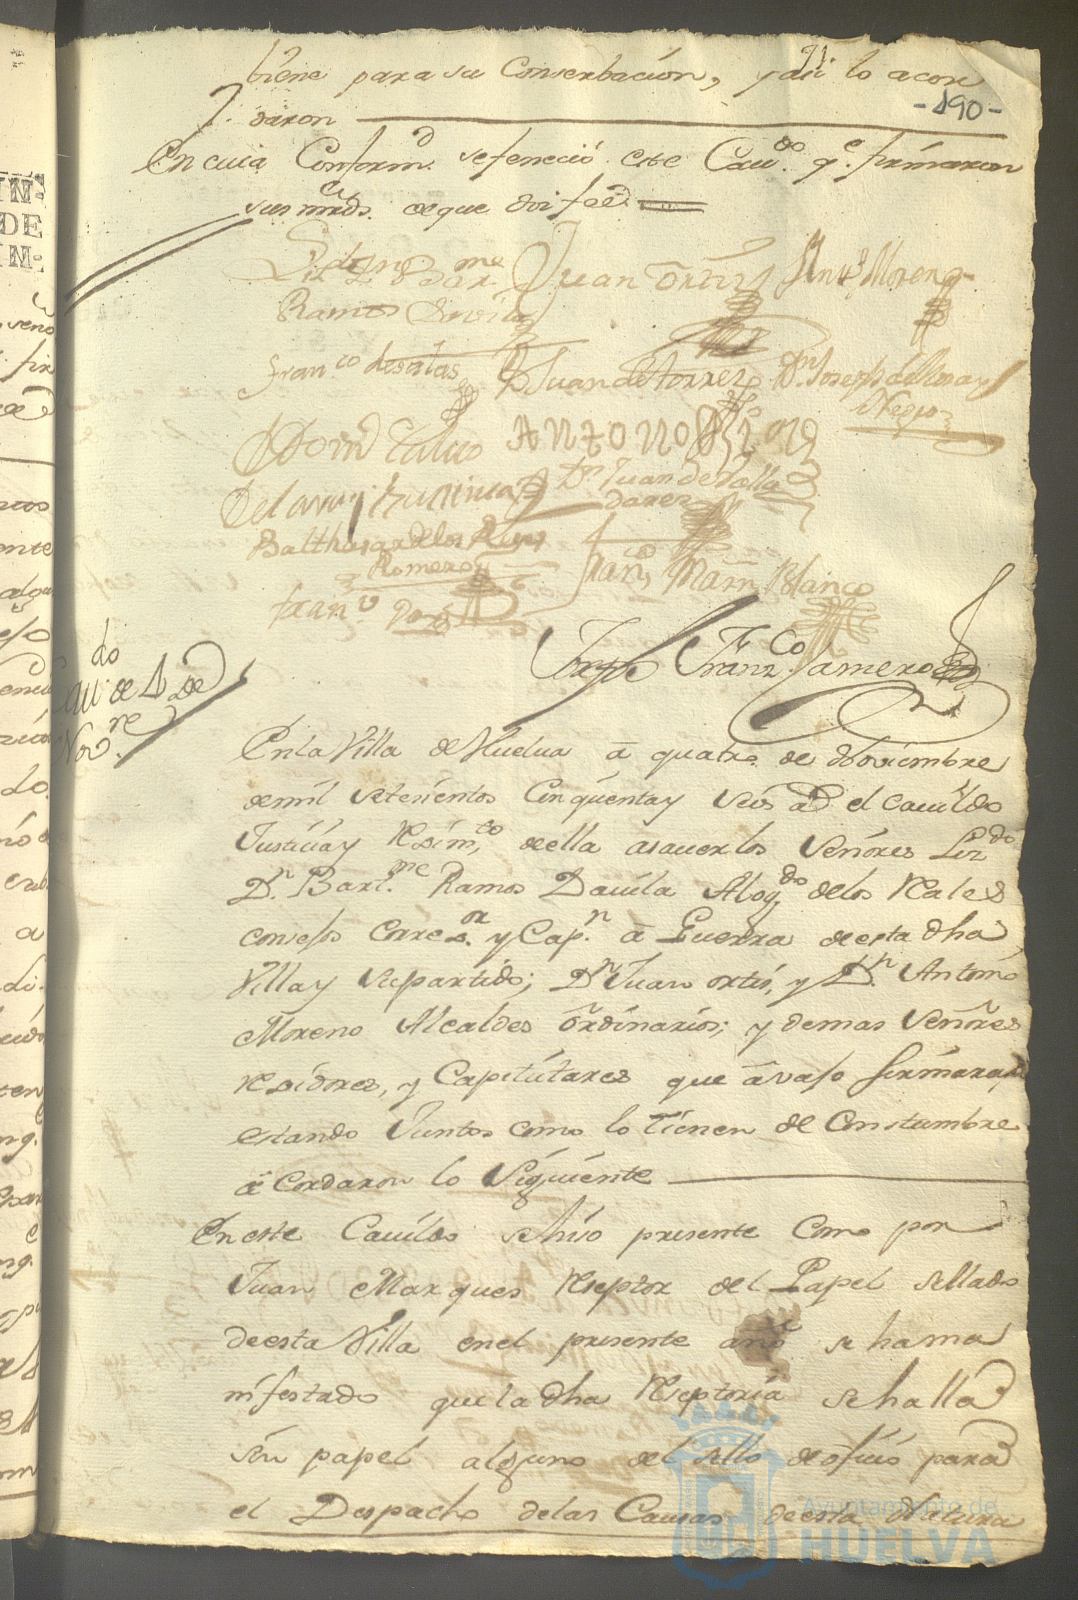 tiene para su Conserbacion, y asi lo acor
daron
-190-
En cuia Conformd. se feneció este Cavdo. qe. firmaron
sus mrds. de que doi fee
Lizdo. Dn. Barme. Juan ortiz Anto. Moreno
Ramos Davila
Franco. de salas Dn. Juan de torres Dn. Joseph del
Negro
Antonio
Dn. Juan de Valla
dares
Balthasar de los Reyes
Romero
Juan Martin Blanco
Franco.
Jorge Franzco. Jamero
Cavdo. de 4 de
Novre.
En la Villa de Huelva â quatro de Noviembre
de mil setezientos Cinquenta y seis ad. el Cavildo
Justicia y Rexímto. de ella asaver los Señores Lizdo
Dn. Barme. Ramos Davila Abogdo de los Reales
consejos Correor. y Capn. â Guerra de esta dha
Villa y su partido; Dn Juan ortis, y Dn. Antonio
Moreno Alcaldes ôrdinarios; y demas Señores
Rexidores, y Capitulares que âvajo firmaran
estando Juntos como lo tienen de Constumbre
âcordaron lo Siguiente
En este Cavildo se hiso presente Como por
Juan Marques Reseptor del Papel sellado
de esta Villa en el presente año se ha ma
nifestado que la dha Reseptoria se halla
sin papel alguno del sello de oficio para
el Despacho de las Causas de esta Natura
Ayuntamiento de
HUELVA